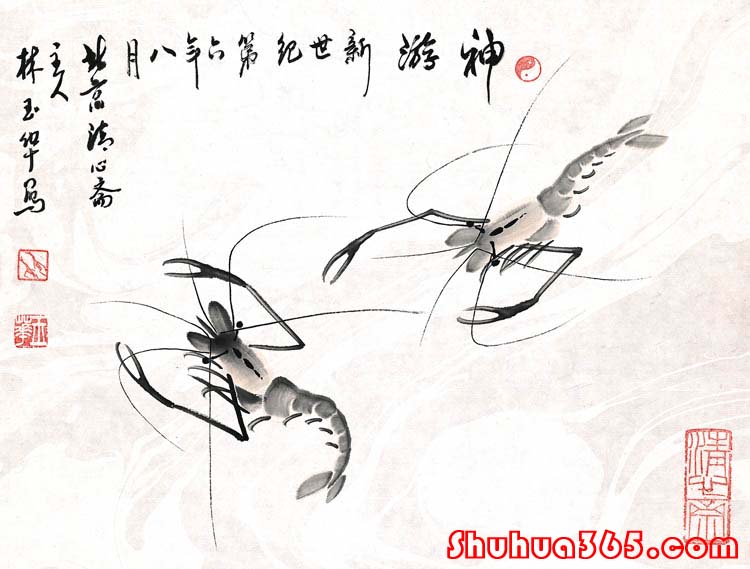 神游 新世纪第六年八月
北 清心斋
主人
林玉华写
清心斋
Shuhua365.com